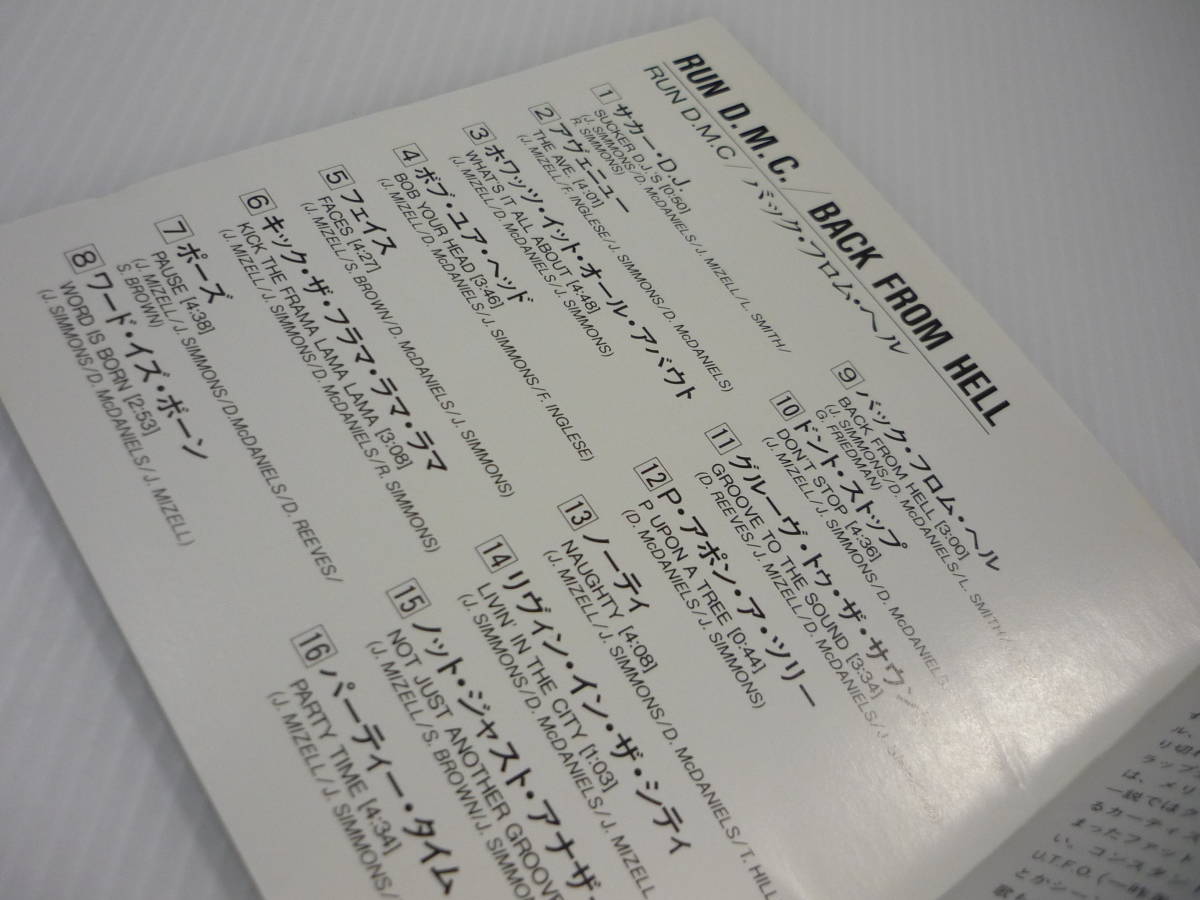 RUN D.M.C./BACK FROM HELL
RUN D.M.C/バック・フロム・ヘル
1 サカー・D.J.
SUCKER D.J.'S [0:50]
(J. SIMMONS/D. McDANIELS/J. MIZELL/L. SMITH/
R. SIMMONS)
2 アヴェニュー
THE AVE. [4:01]
(J. MIZELL/F. INGLESE/J. SIMMONS/D. McDANIELS)
3 ホワッツ・イット・オール・アバウト
WHAT'S IT ALL ABOUT [4:48]
(J. MIZELL/D. McDANIELS/J. SIMMONS)
4 ボブ・ユア・ヘッド
BOB YOUR HEAD [3:46]
(J. MIZELL/D. McDANIELS/J. SIMMONS/F. INGLESE)
5 フェイス
FACES [4:27]
(J. MIZELL/S. BROWN/D. McDANIELS/J. SIMMONS)
6 キック・ザ・フラマ・ラマ・ラマ
KICK THE FRAMA LAMA LAMA [3:08]
(J. MIZELL/J. SIMMONS/D. McDANIELS/R. SIMMONS)
7 ポーズ
PAUSE [4:38]
(J. MIZELL/J. SIMMONS/D.McDANIELS/D. REEVES/
S. BROWN)
8 ワード・イズ・ボーン
WORD IS BORN [2:53]
(J. SIMMONS/D. McDANIELS/J. MIZELL)
9 バック・フロム・ヘル
BACK FROM HELL [3:00]
(J. SIMMONS/D. McDANIELS/L. SMITH/
G. FRIEDMAN)
10 ドント・ストップ
DON'T STOP [4:36]
(J. MIZELL/J. SIMMONS/D. McDANIELS
11 グルーヴ・トゥ・ザ・サウン
GROOVE TO THE SOUND [3:34]
(D. REEVES/J. MIZELL/D. McDANIELS/J.
12 P・アポン・ア・ツリー
P UPON A TREE [0:44]
(D. McDANIELS/J. SIMMONS)
13 ノーティ
NAUGHTY [4:08]
(J. MIZELL/J. SIMMONS/D. McDANIELS/T. HILL
14 リヴィン・イン・ザ・シティ
LIVIN' IN THE CITY [1:03]
(J. SIMMONS/D. McDANIELS/J. MIZELL
15 ノット・ジャスト・アナザ
NOT JUST ANOTHER GROOVE
(J. MIZELL/S. BROWN/J. SIMMON
16 パーティー・タイム
PARTY TIME [4:34]
(J. MIZELL/J. SIMMONS/
ル、
り切
ラップ
は、メリ
一説では
るカーティ
まったファット
い、コンスタン
U.T.F.O.(一昨
とかシー